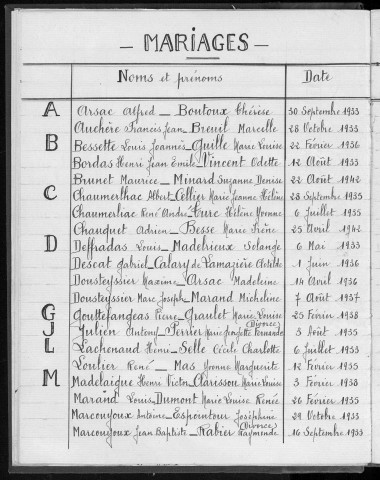 — MARIAGES —
Noms et prénoms Date
A Arsac Alfred — Boutoux Thérèse 30 Septembre 1933
Auchère Francis Jean Breuil Marcelle 28 Octobre 1933
B Bessette Louis Joannis Guille Marie Louise 22 Février 1936
Bordas Henri Jean Emile Vincent Odette 12 Août 1933
Brunet Maurice — Minard Suzanne Denise 22 Août 1942
C Chaumerlhac Albert Cellier Marie Jeanne Hélène 28 Septembre 1933
Chaumerliac René André Hélène Yvonne 6 Juillet 1935
Chauquet Adrien — Besse Marie Irène 25 Avril 1942
D Deffradas Louis — Madebrieux Solange 6 Mai 1933
Descat Gabriel — Calary de Lamazière Clotilde 1 Juin 1936
Dousteyssier Maxime — Arsac Madeleine 14 Avril 1936
Dousteyssier Marc Joseph — Marand Micheline 7 Août 1937
G Gouttefangeas Pierre — Graulet Marie Louise 25 Février 1938
J Julien Antony Perrier Marie Fernande (Divorce) 3 Août 1935
L Lachenaud Henri — Selle Cécile Charlotte 6 Juillet 1933
Loulier René — Mas Yvonne Marguerite 12 Février 1935
M Madelaigue Henri Victor Clarisson Marie Louise 3 Février 1938
Marand Louis Dumont Marie Louise Renée 26 Février 1933
Marcoujoux Antoine — Espointour Joséphine 29 Octobre 1933
Marcoujoux Jean Baptiste — Rabier Raymonde (Divorce) 16 Septembre 1933